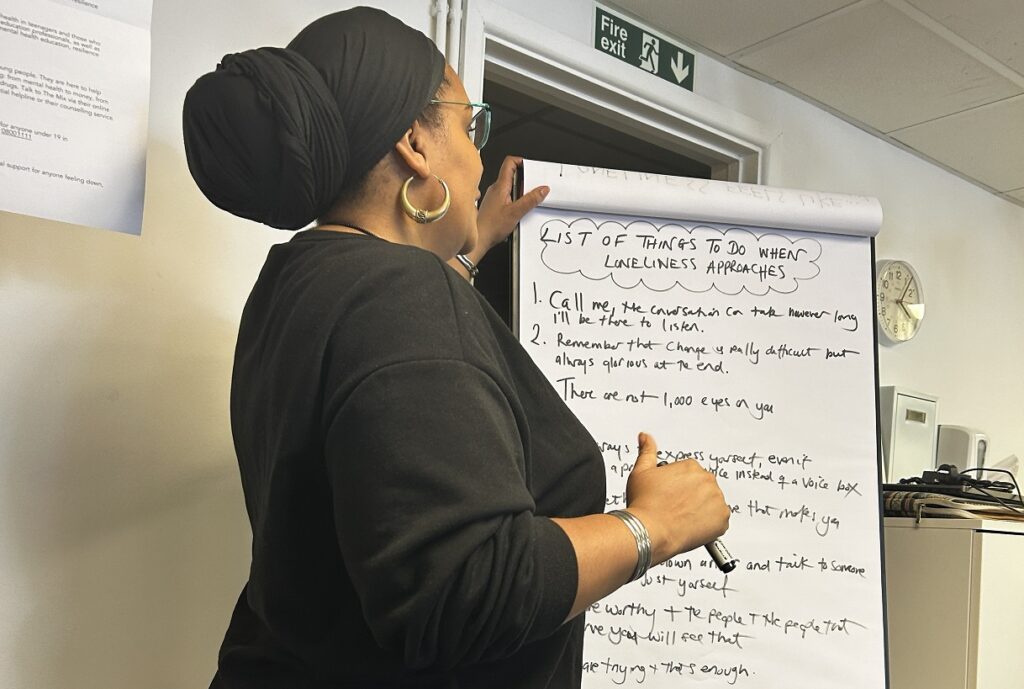 resilience
health in teenagers and those who
education professionals, as well as
mental health education, resilience
young people. They are here to help
from mental health to money, from
drugs. Talk to The Mix via their online
helpline or their counselling service.
for anyone under 19 in
08001111
support for anyone feeling down,
Fire
exit
LONELINESS FEELS LIKE...
LIST OF THINGS TO DO WHEN
LONELINESS APPROACHES
1. Call me, the conversation can take however long
I'll be there to listen.
2. Remember that change is really difficult but
always glorious at the end.
There are not 1,000 eyes on you
express yourself, even if
instead of a voice box
that makes you
down and talk to someone
just yourself
worthy + the people + the people that
you will see that
are trying + that's enough.